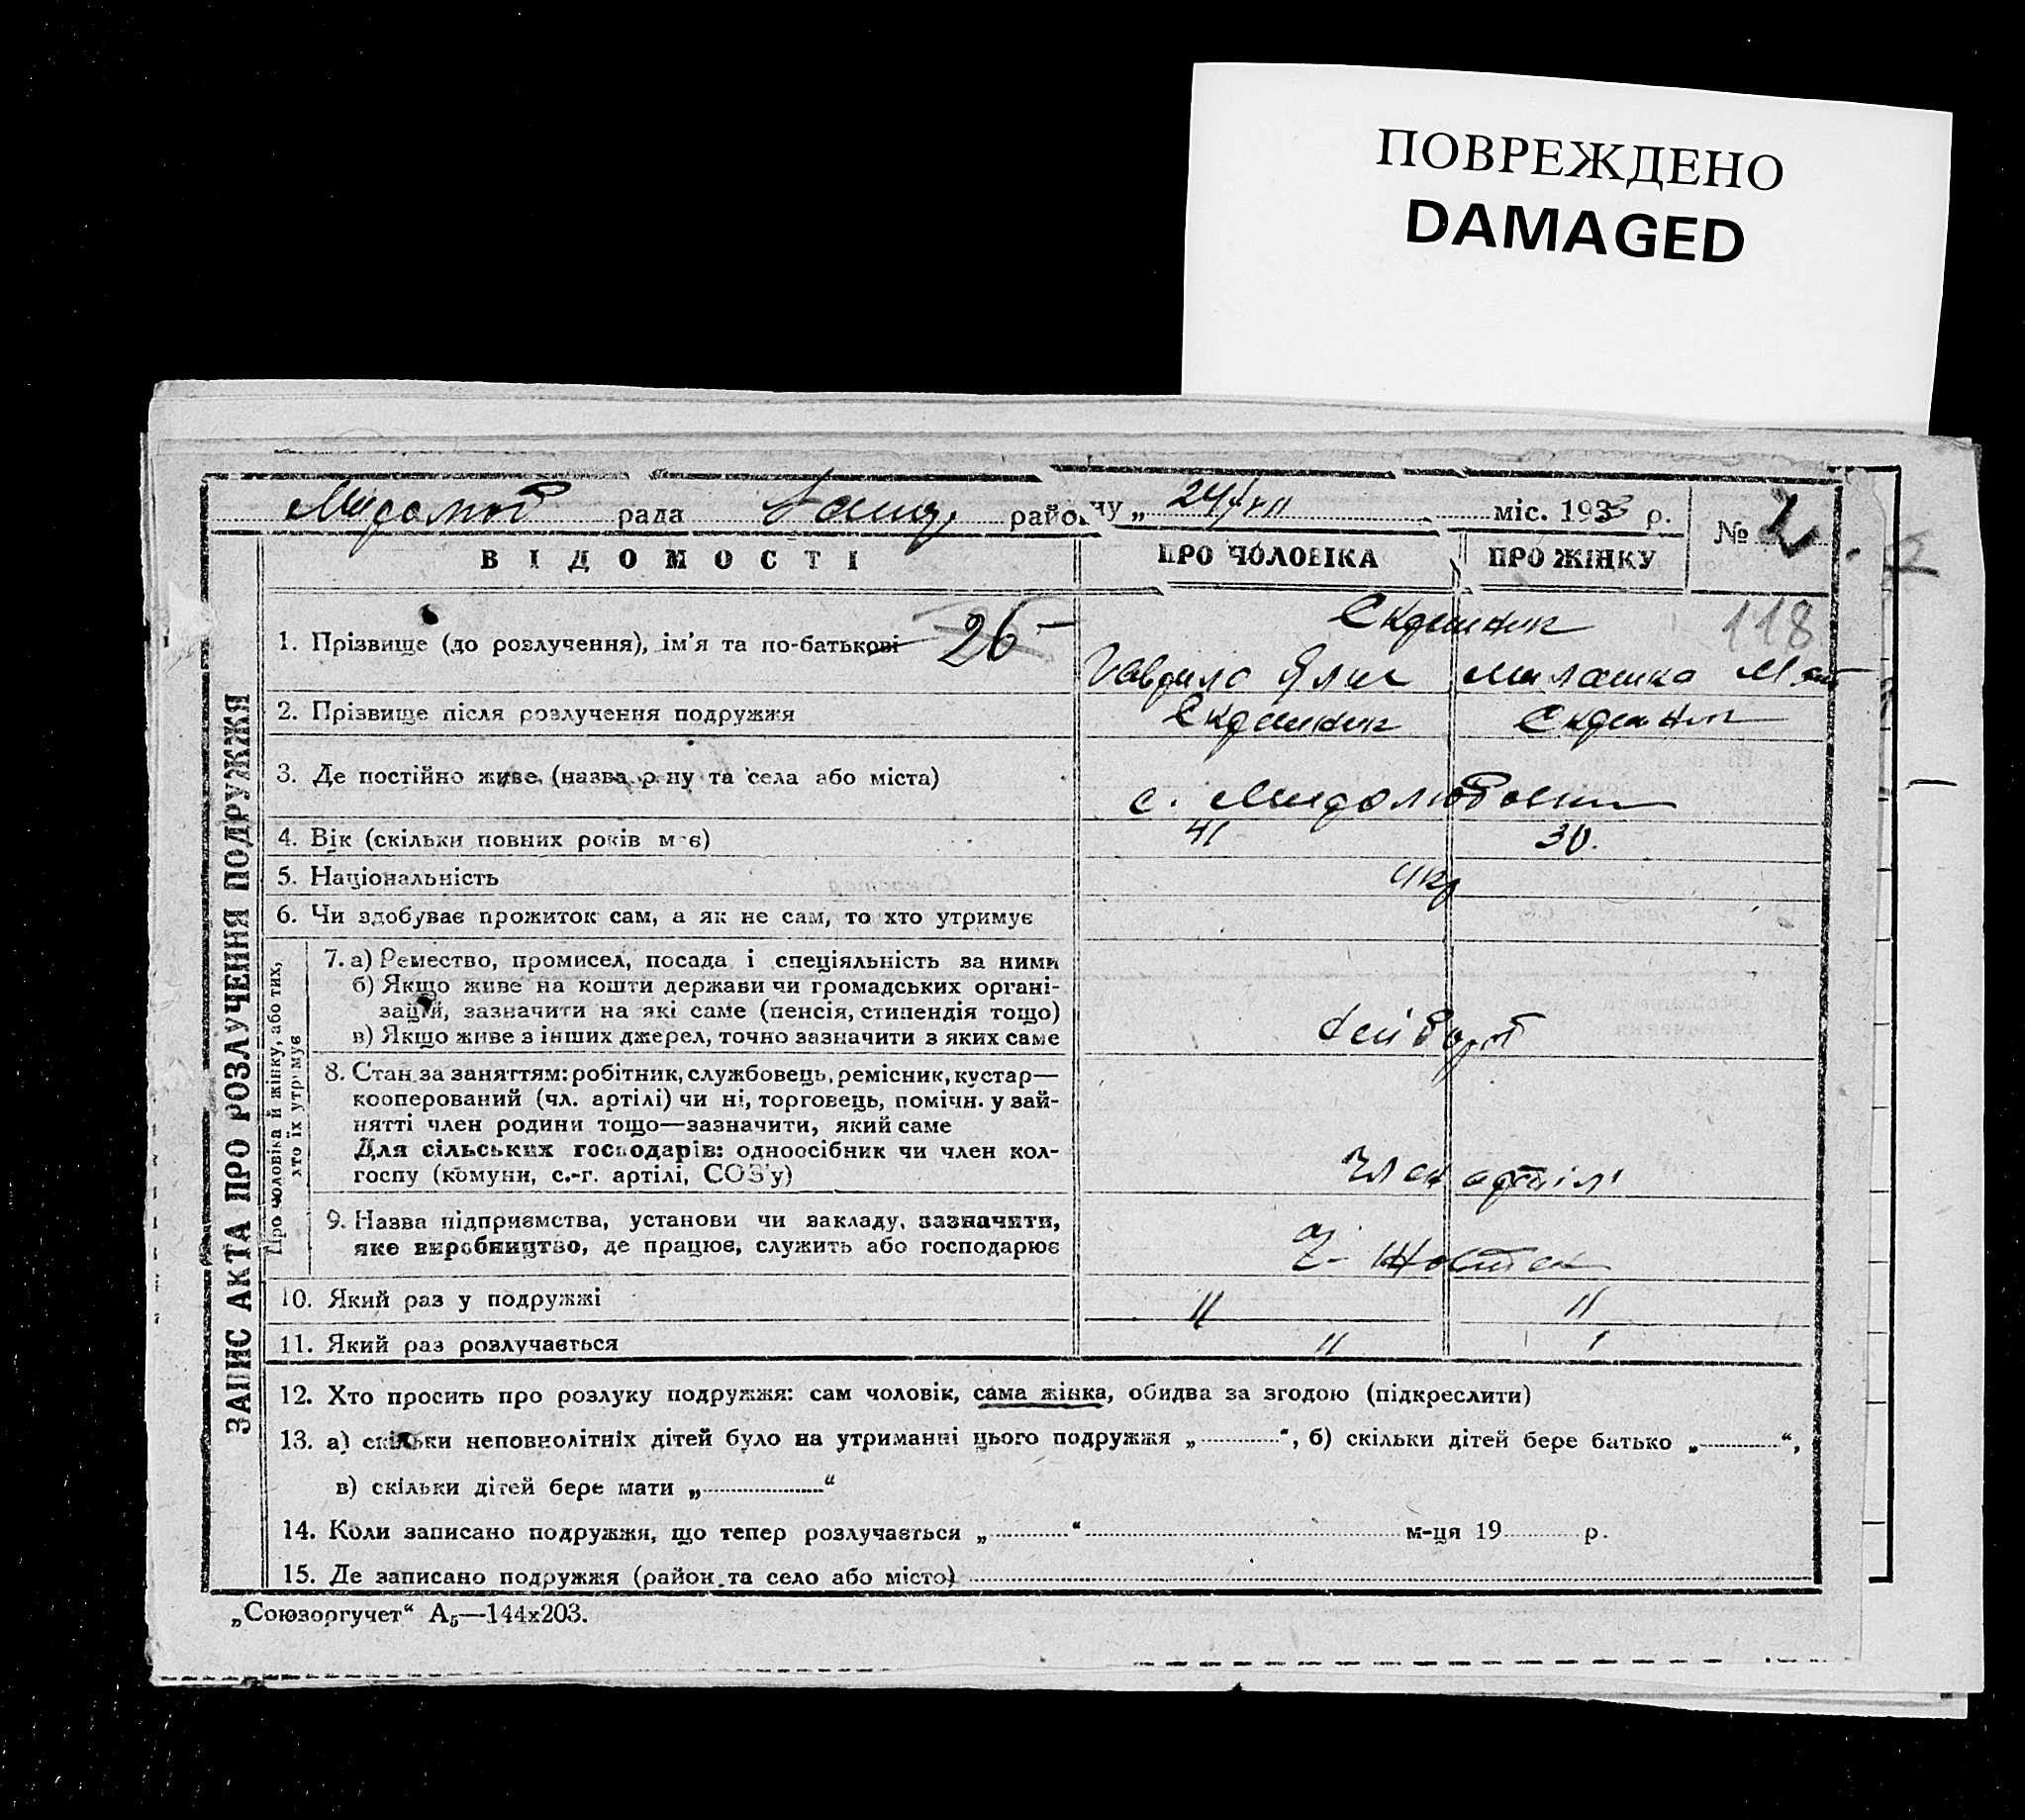 ПОВРЕЖДЕНО
DAMAGED
рада район у „ 24/VII міс. 1933 р.
№ 2
ВІДОМОСТІ ПРО ЧОЛОВІКА ПРО ЖІНКУ
118
1. Прізвище (до розлучення), ім'я та по-батькові 26
Гаврило Милашка
2. Прізвище після розлучення подружжя
3. Де постійно живе (назва р-ну та села або міста) с. Миролюбовки
4. Вік (скільки повних років має) 41 30.
5. Національність укр
6. Чи здобуває прожиток сам, а як не сам, то хто утримує
Про чоловіка й жінку, або тих, хто їх утримує
7. а) Ремество, промисел, посада і спеціяльність за ними
б) Якщо живе на кошти держави чи громадських органі-
зацій, зазначити на які саме (пенсія, стипендія тощо)
в) Якщо живе з інших джерел, точно зазначити з яких саме
8. Стан за заняттям: робітник, службовець, ремісник, кустар—
кооперований (чл. артілі) чи ні, торговець, помічн. у зай-
нятті член родини тощо—зазначити, який саме
Для сільських господарів: одноосібник чи член кол-
госпу (комуни, с.-г. артілі, СОЗ'у) Член артілі
9. Назва підприємства, установи чи закладу, зазначити,
яке виробництво, де працює, служить або господарює
10. Який раз у подружжі II II
11. Який раз розлучається II I
12. Хто просить про розлуку подружжя: сам чоловік, сама жінка, обидва за згодою (підкреслити)
13. а) скільки неповнолітніх дітей було на утриманні цього подружжя „ “, б) скільки дітей бере батько „ “,
в) скільки дітей бере мати „ “
14. Коли записано подружжя, що тепер розлучається „ “ м-ця 19 р.
15. Де записано подружжя (район та село або місто)
ЗАПИС АКТА ПРО РОЗЛУЧЕННЯ ПОДРУЖЖЯ
„Союзоргучет“ А₅—144х203.